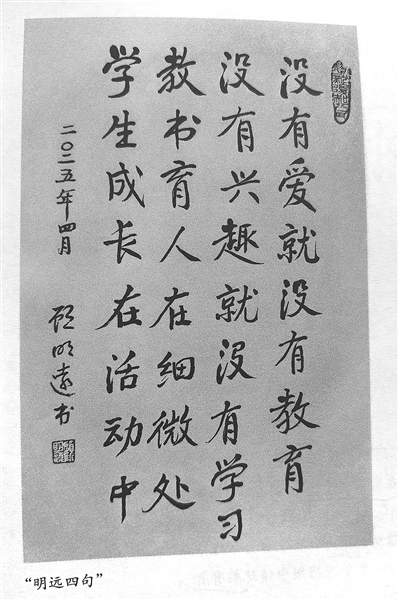 没有爱就没有教育
没有兴趣就没有学习
教书育人在细微处
学生成长在活动中
二〇二五年四月
顾明远书
“明远四句”